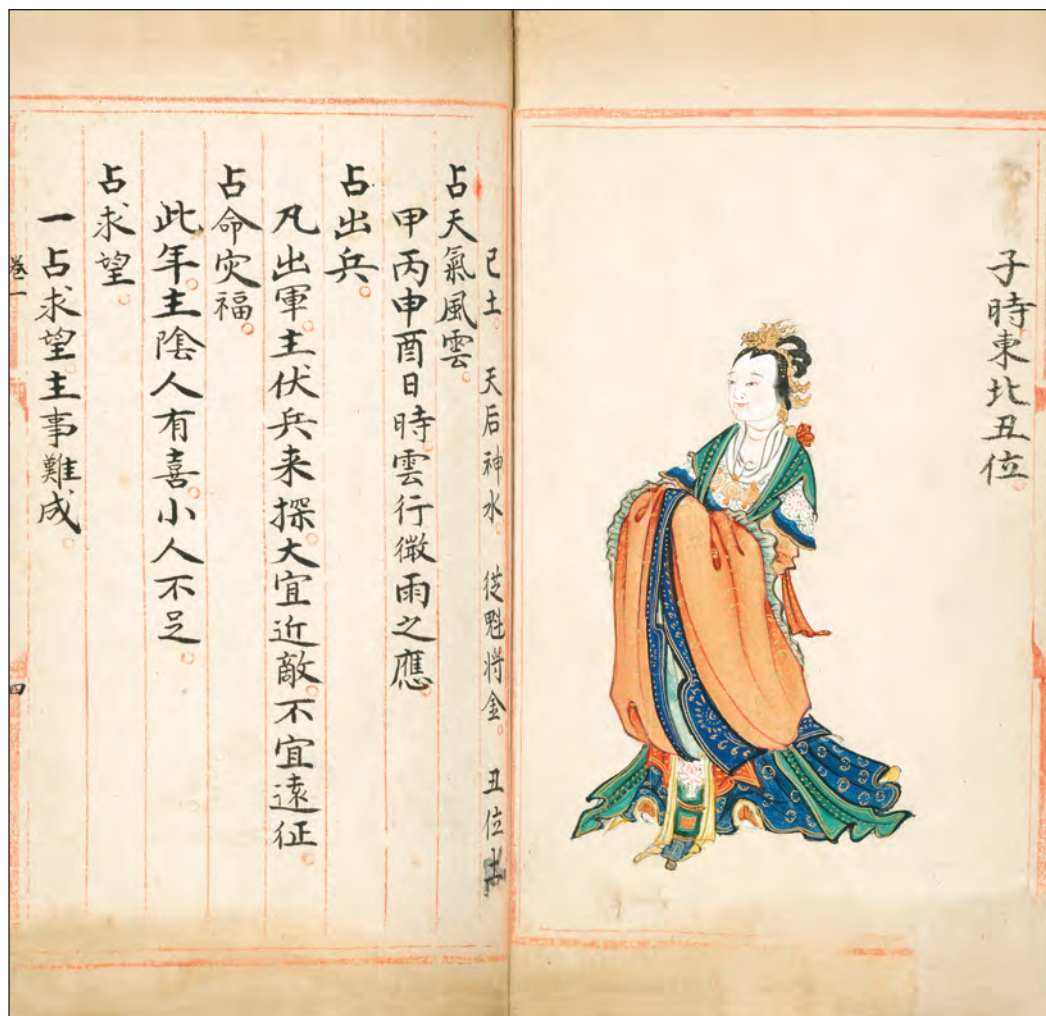 子時東北丑位。
己土。 天后神水。 從魁將金。 丑位土
占天氣風雲。
甲丙申酉日時。雲行微雨之應。
占出兵。
凡出軍。主伏兵来探。大宜近敵。不宜遠征。
占命灾福。
此年。主陰人有喜。小人不足。
占求望。
一占求望。主事難成。
卷一
四